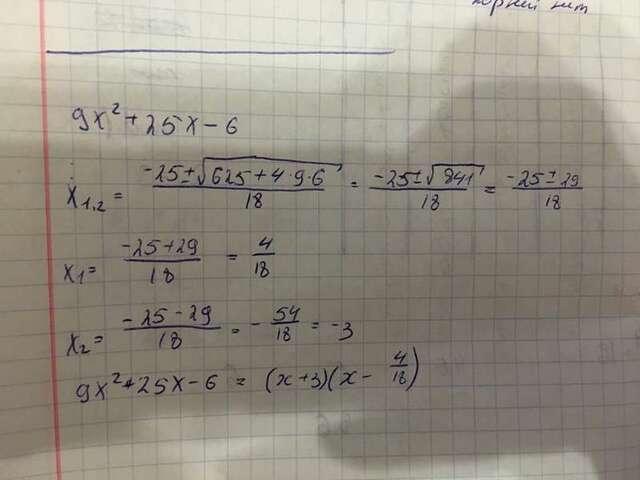 корней нет
9x² + 25x - 6
x₁,₂ = (-25 ± √(625 + 4·9·6))/18 = (-25 ± √841)/18 = (-25 ± 29)/18
x₁ = (-25 + 29)/18 = 4/18
x₂ = (-25 - 29)/18 = - 54/18 = -3
9x² + 25x - 6 = (x + 3)(x - 4/18)